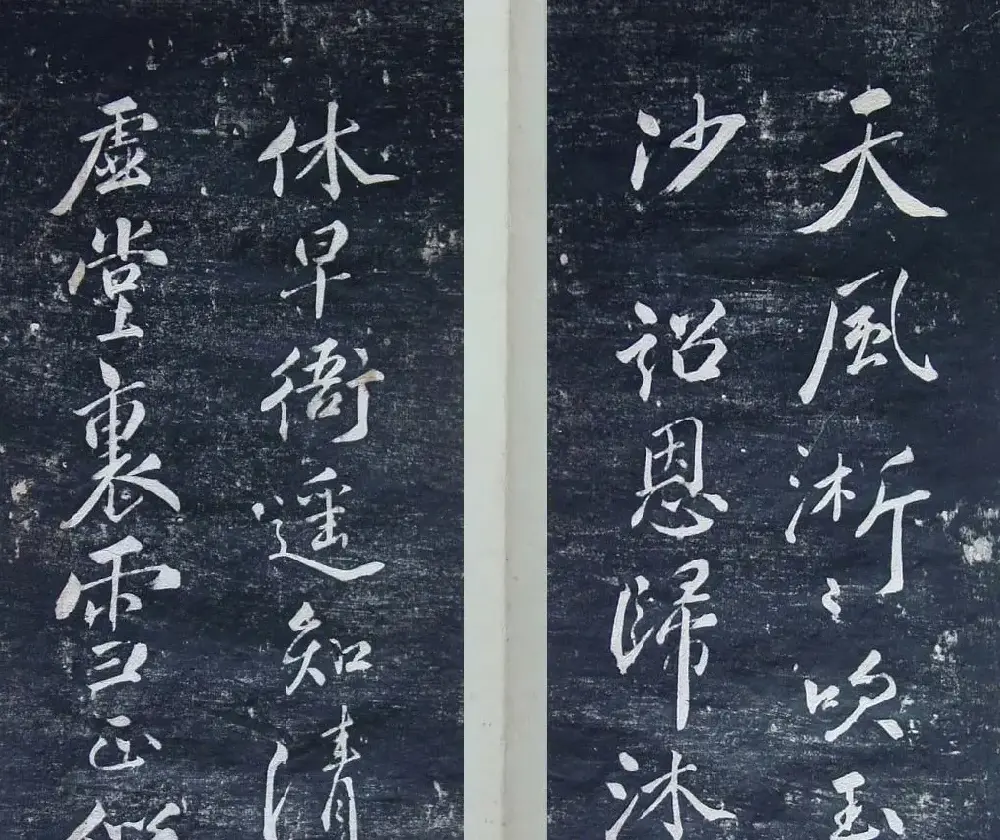 天風淅〻吹玉
沙詔恩歸沐
休早衙遥知清
虛堂裏雪正似